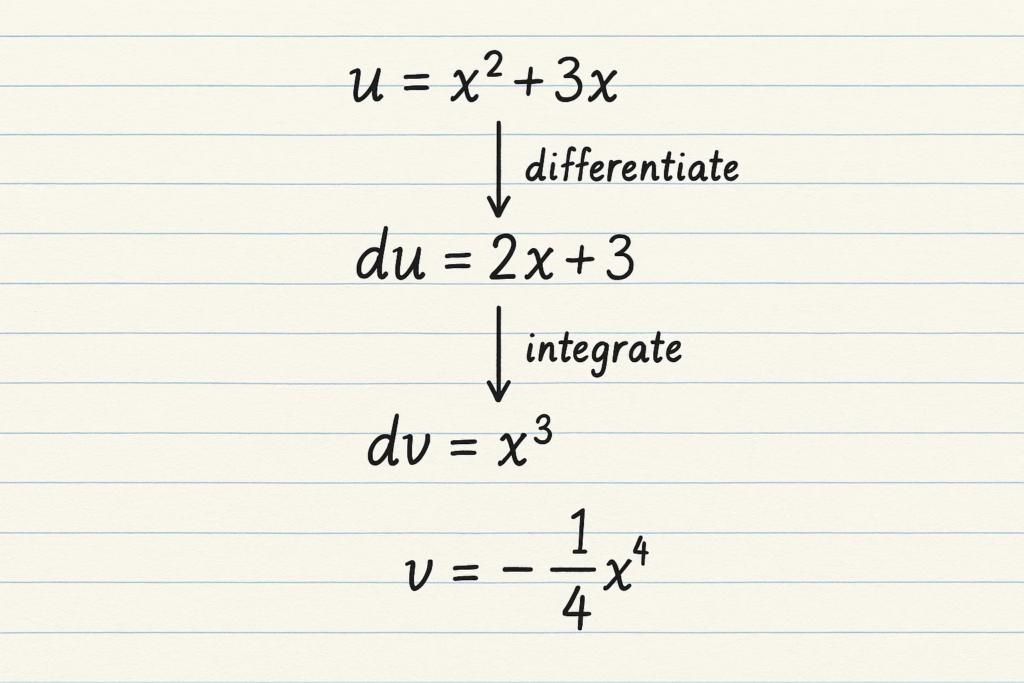 u = x² + 3x
↓ differentiate
du = 2x + 3
↓ integrate
dv = x³
v = - 1/4 x⁴